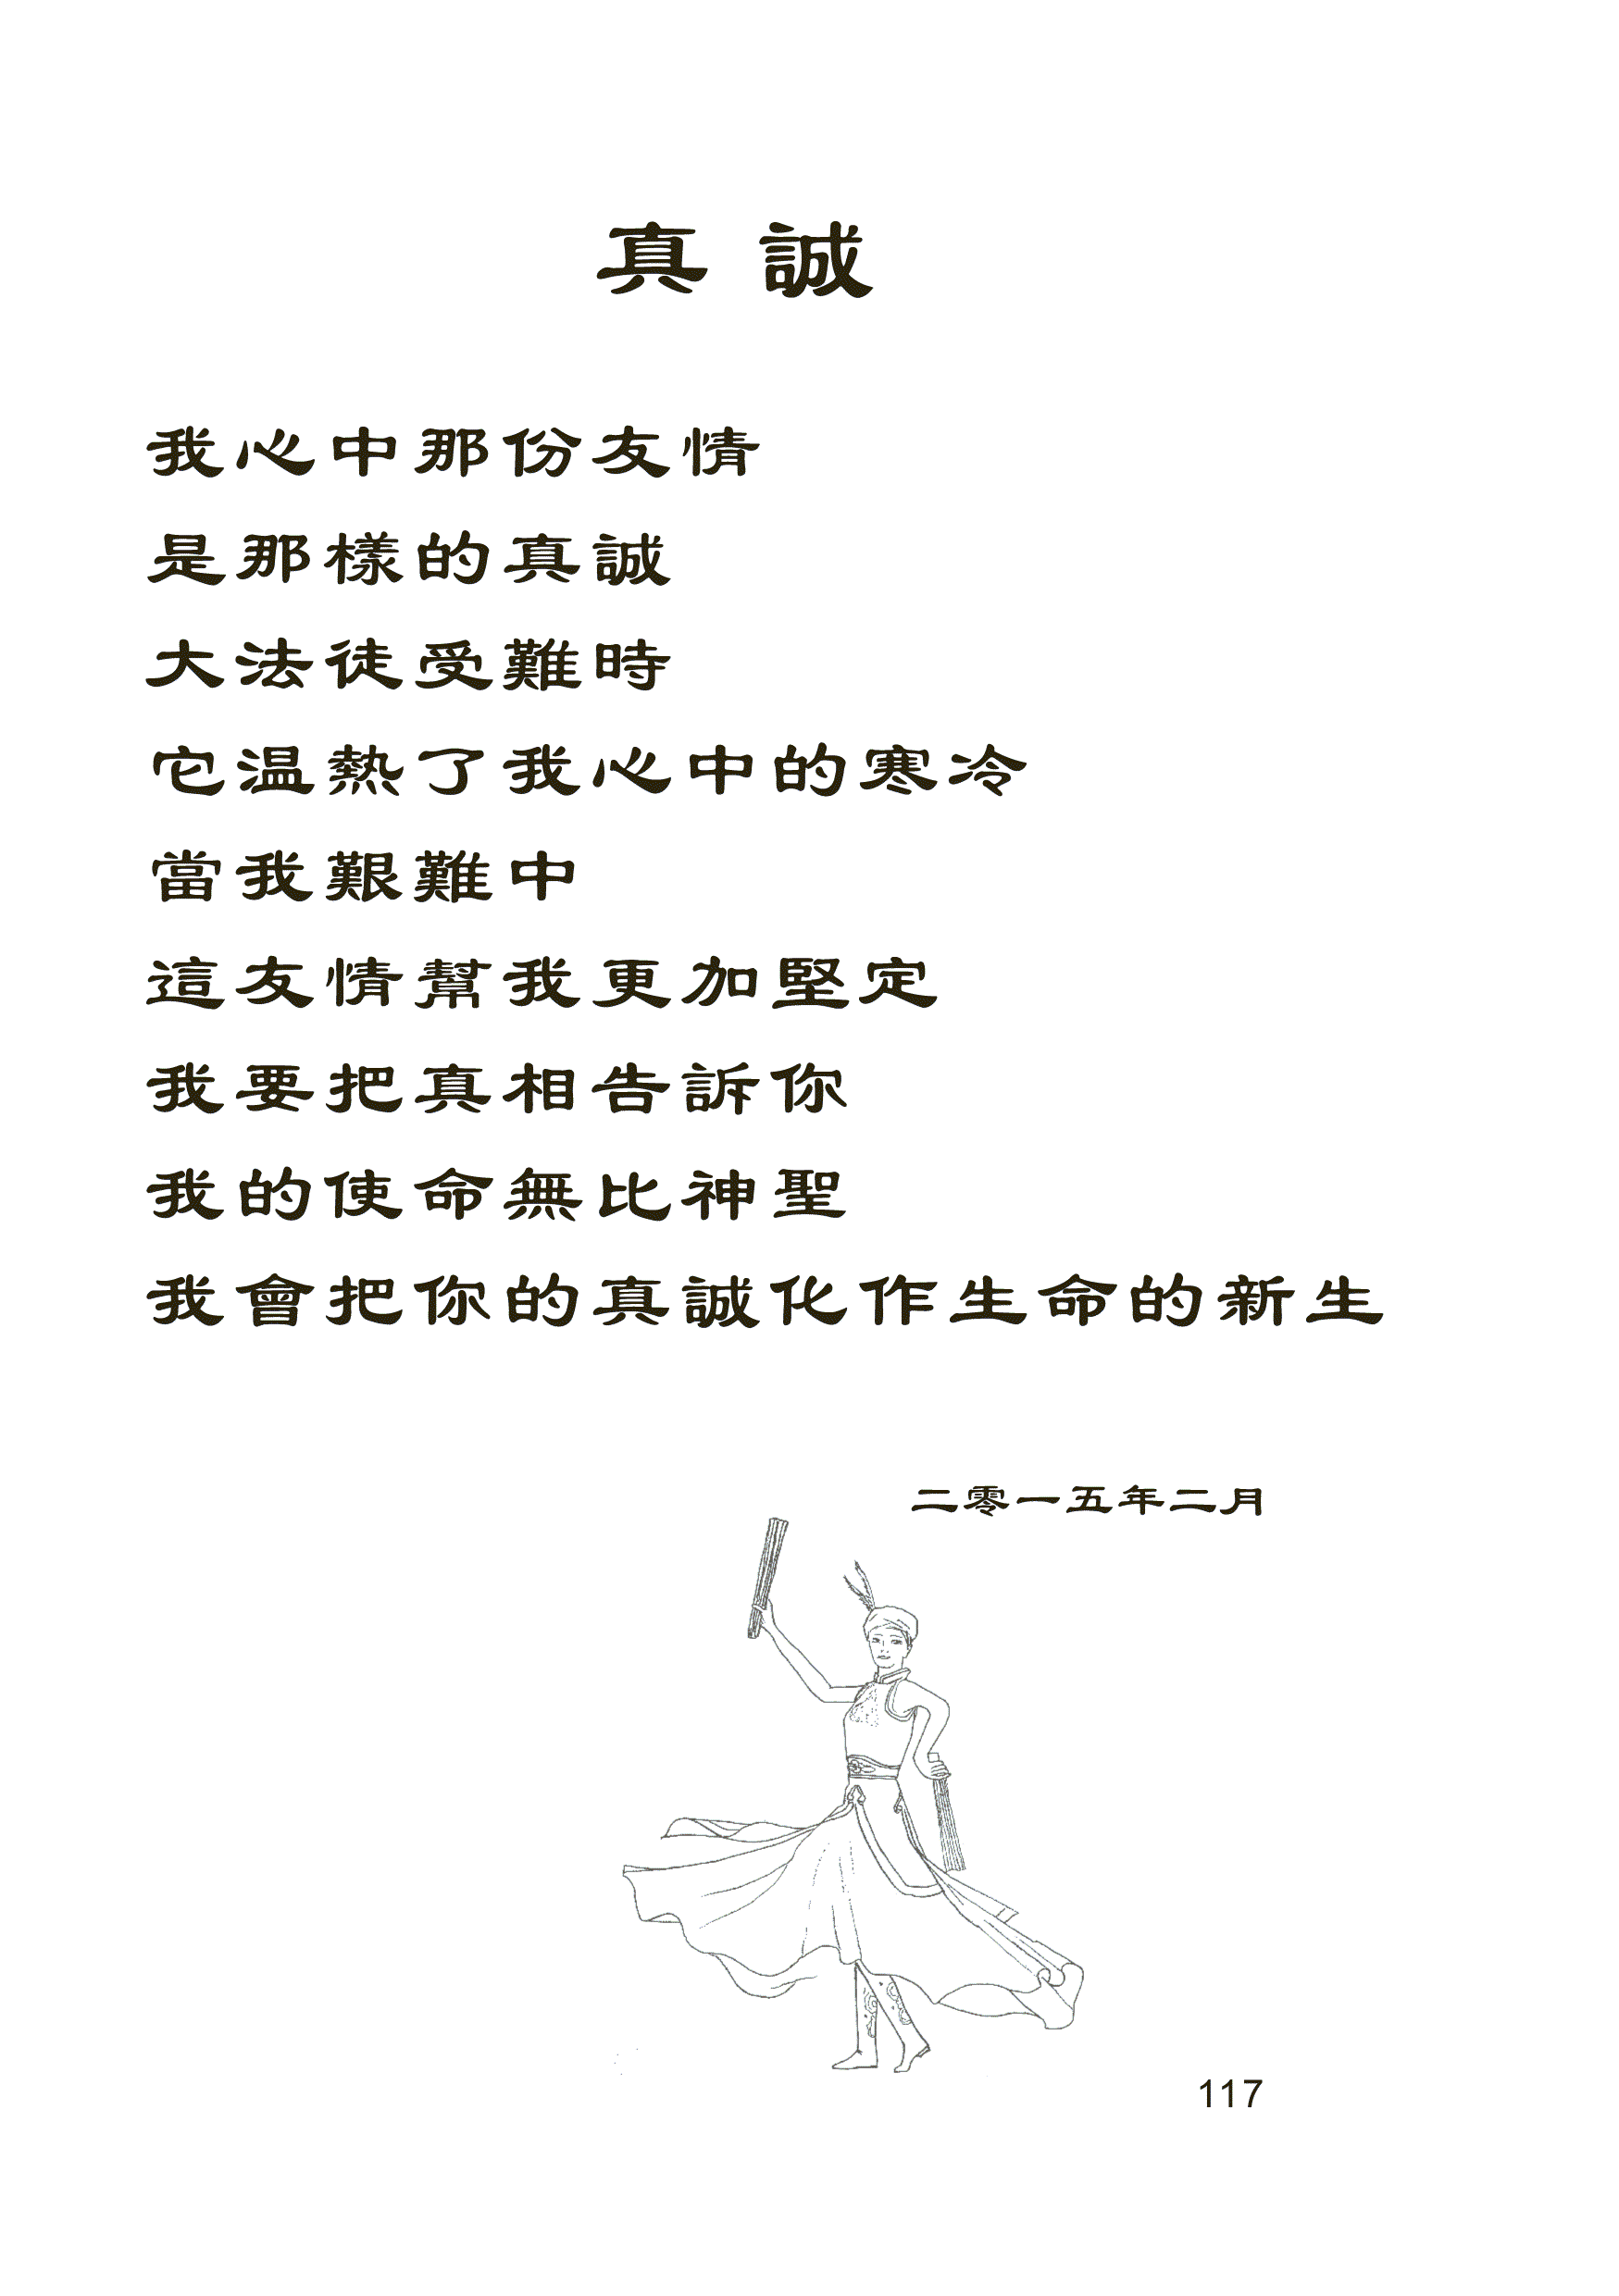 真誠
我心中那份友情
是那樣的真誠
大法徒受難時
它温熱了我心中的寒冷
當我艱難中
這友情幫我更加堅定
我要把真相告訴你
我的使命無比神聖
我會把你的真誠化作生命的新生
二零一五年二月
117